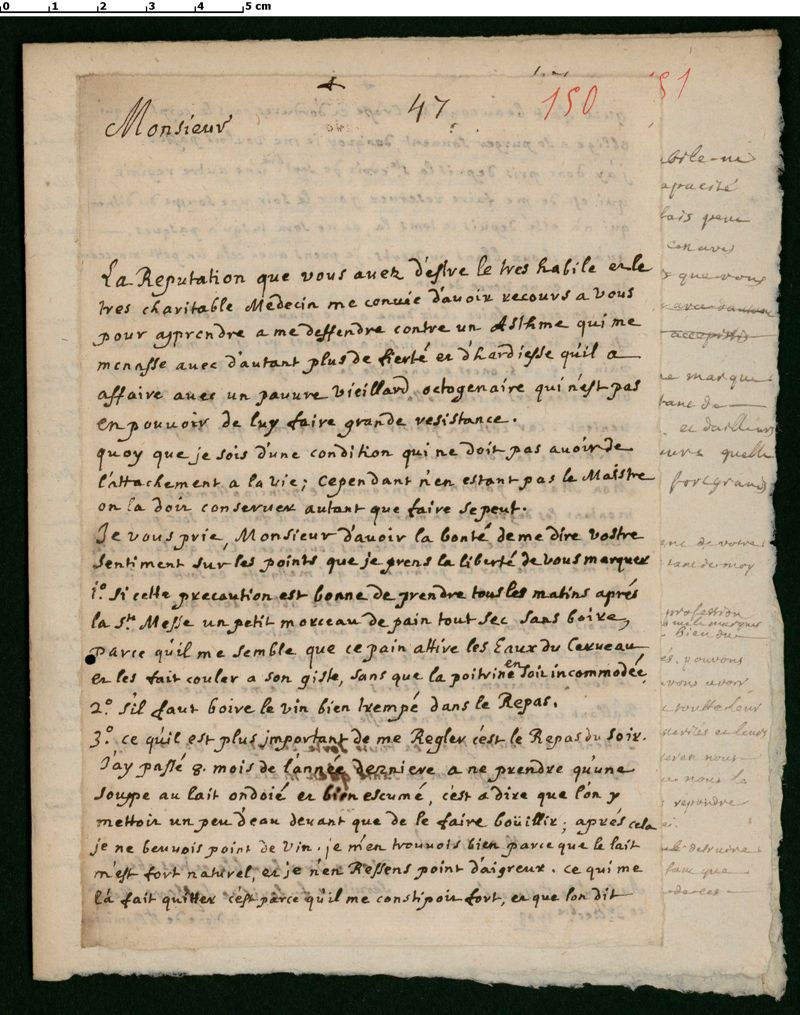 0 1 2 3 4 5 cm
47
150
151
Monsieur
La Reputation que vous auez d'estre le tres habile et le
tres charitable Medecin me conuie d'auoir recours a vous
pour apprendre a me deffendre contre un Asthme qui me
menasse auec d'autant plus de fierté et d'hardiesse qu'il a
affaire auec un pauure vieillard octogenaire qui n'est pas
en pouuoir de luy faire grande resistance.
quoy que je sois d'une condition qui ne doit pas auoir de
l'attachement a la vie; cependant n'en estant pas le Maistre
on la doit conseruer autant que faire se peut.
Je vous prie, Monsieur d'avoir la bonté de me dire vostre
sentiment sur les points que je prens la liberté de vous marquer
1.° si cette precaution est bonne de prendre tous les matins aprés
la s.te Messe un petit morceau de pain tout sec sans boire,
parce qu'il me semble que ce pain attire les Eaux du Cerueau
et les fait couler a son giste, sans que la poitrine en soit incommodée,
2.° s'il faut boire le vin bien trempé dans le Repas.
3.° ce qu'il est plus important de me Regler c'est le Repas du soir.
J'ay passé 8. mois de l'année derniere a ne prendre qu'une
souppe au lait ondoié et bien escumé, c'est a dire que l'on y
mettoit un peu d'eau deuant que de le faire boüillir; aprés cela
je ne beuuois point de vin. je m'en trouuois bien parce que le lait
m'est fort naturel, et je n'en Ressens point d'aigreur. ce qui me
l'a fait quitter c'est parce qu'il me constipoit fort, et que l'on dit
apacité
que vous
marque
tant de
et dailleurs
quelle
fort grand
de votre
profession
bien du
pouvons
vous avoir
nous le
repondre
que